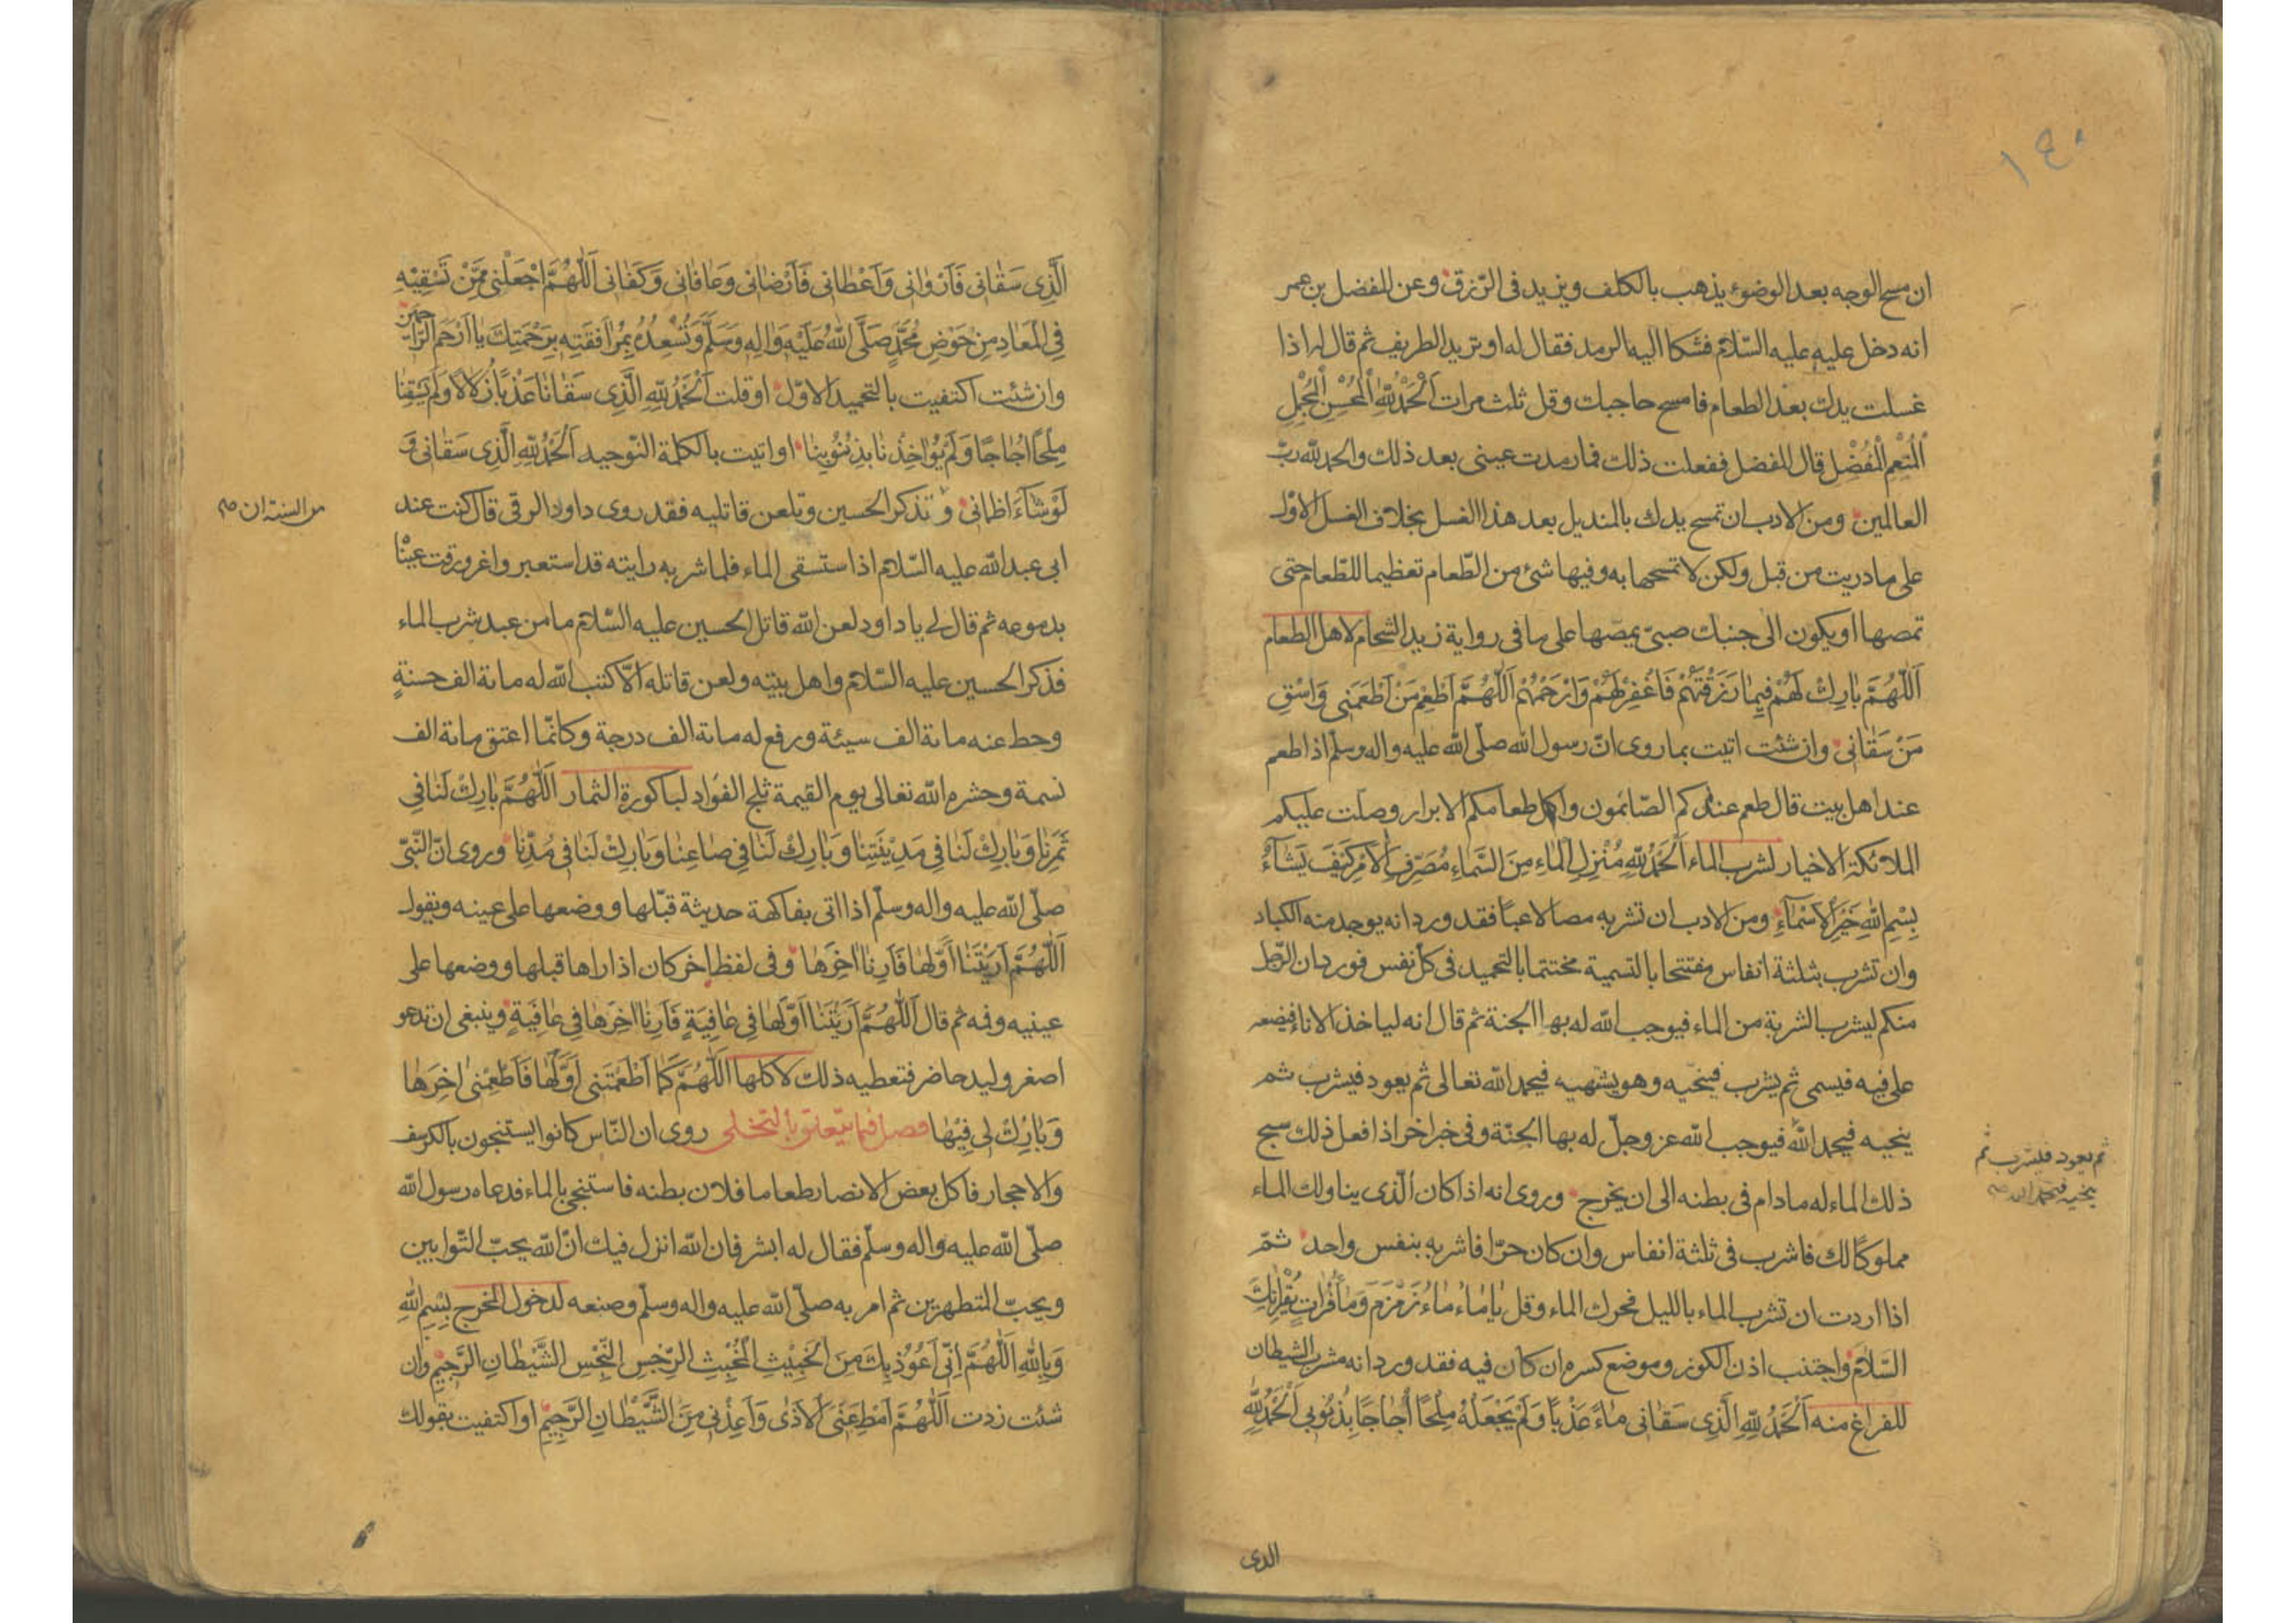 ١٤٠
ان مسح الوجه بعد الوضوء يذهب بالكلف ويزيد فى الرّزق وعن المفضل بن عمر
انه دخل عليه عليه السّلام فشكا اليه الرمد فقال له او تريد الطريف ثم قال له اذا
غسلت يدك بعد الطعام فامسح حاجبك وقل ثلث مرات اَلْحَمْدُ لِلّٰهِ الْمُحْسِنِ الْمُجْمِلِ
الْمُنْعِمِ الْمُفْضِلِ قال المفضل ففعلت ذلك فما رمدت عينى بعد ذلك والحمد لله ربّ
العالمين ومن الادب ان تمسح يدك بالمنديل بعد هذا الغسل بخلاف الغسل الاوّل
على ما دريت من قبل ولكن لا تمسحها به وفيها شئ من الطّعام تعظيما للطّعام حتى
تمصها او يكون الى جنبك صبىّ يمصّها على ما فى رواية زيد الشحام لاهل الطعام
اَللّٰهُمَّ بٰارِكْ لَهُمْ فِيمٰا رَزَقْتَهُمْ فَاغْفِرْ لَهُمْ وَارْحَمْهُمْ اَللّٰهُمَّ اَطْعِمْ مَنْ اَطْعَمَنِى وَاسْقِ
مَنْ سَقٰانِى وان شئت اتيت بما روى انّ رسول الله صلّى الله عليه واله وسلّم اذا طعم
عند اهل بيت قال طعم عندكم الصّائمون واكل طعامكم الابرار وصلّت عليكم
الملائكة الاخيار لشرب الماء اَلْحَمْدُ لِلّٰهِ مُنْزِلِ الْمٰاءِ مِنَ السَّمٰاءِ مُصَرِّفِ الْاَمْرِ كَيْفَ يَشٰاءُ
بِسْمِ اللّٰهِ خَيْرِ الْاَسْمٰاءِ ومن الادب ان تشربه مصا لا عبّا فقد ورد انه يوجد منه الكباد
وان تشرب بثلثة انفاس مفتتحا بالتسمية مختتما بالتحميد فى كل نفس فورد ان الرّجل
منكم ليشرب الشربة من الماء فيوجب الله له بها الجنة ثم قال انه لياخذ الاناء فيضعه
على فيه فيسمى ثم يشرب فينحّيه وهو يشتهيه فيحمد الله تعالى ثم يعود فيشرب ثم
ينحيه فيحمد الله فيوجب الله عز وجلّ له بها الجنّة وفى خبر اخر اذا فعل ذلك سبح
ثم يعود فيشرب ثم
ينحيه فيحمد الله صح
ذلك الماء له ما دام فى بطنه الى ان يخرج وروى انه اذا كان الّذى يناولك الماء
مملوكًا لك فاشرب فى ثلثة انفاس وان كان حرّا فاشربه بنفس واحد ثمّ
اذا اردت ان تشرب الماء بالليل فحرك الماء وقل يٰا مٰاءُ مٰاءُ زَمْزَمَ وَمٰاءُ فُرٰاتٍ يُقْرِئٰانِكَ
السَّلٰامَ واجتنب اذن الكوز وموضع كسره ان كان فيه فقد ورد انه مشرب الشيطان
للفراغ منه اَلْحَمْدُ لِلّٰهِ الَّذِى سَقٰانِى مٰاءً عَذْبًا وَلَمْ يَجْعَلْهُ مِلْحًا اُجٰاجًا بِذُنُوبِى اَلْحَمْدُ لِلّٰهِ
الذى
اَلَّذِى سَقٰانِى فَاَرْوٰانِى وَاَعْطٰانِى فَاَرْضٰانِى وَعٰافٰانِى وَكَفٰانِى اَللّٰهُمَّ اجْعَلْنِى مِمَّنْ تَسْقِيْهِ
فِى الْمَعٰادِ مِنْ حَوْضِ مُحَمَّدٍ صَلَّى اللّٰهُ عَلَيْهِ وَاٰلِهِ وَسَلَّمَ وَتُسْعِدُهُ بِمُرٰافَقَتِهِ بِرَحْمَتِكَ يٰا اَرْحَمَ الرّٰاحِمِيْنَ
وان شئت اكتفيت بالتحميد الاوّل او قلت اَلْحَمْدُ لِلّٰهِ الَّذِى سَقٰانٰا عَذْبًا زُلٰالًا وَلَمْ يَسْقِنٰا
مِلْحًا اُجٰاجًا وَلَمْ يُؤٰاخِذْنٰا بِذُنُوبِنٰا او اتيت بالكلمة التّوحيد اَلْحَمْدُ لِلّٰهِ الَّذِى سَقٰانِى وَ
لَوْ شٰاءَ اَظْمٰانِى و تذكر الحسين وتلعن قاتليه فقد روى داود الرقى قال كنت عند
من السنة ان صح
ابى عبد الله عليه السّلام اذا ستسقى الماء فلما شربه رايته قد استعبر واغرورقت عيناه
بدموعه ثم قال لى يا داود لعن الله قاتل الحسين عليه السّلام ما من عبد شرب الماء
فذكر الحسين عليه السّلام واهل بيته ولعن قاتله الّا كتب الله له مائة الف حسنةٍ
وحط عنه مائة الف سيئة ورفع له مائة الف درجة وكانّما اعتق مائة الف
نسمة وحشره الله تعالى يوم القيمة ثلج الفؤاد لباكورة الثمار اَللّٰهُمَّ بٰارِكْ لَنٰا فِى
ثَمَرِنٰا وَبٰارِكْ لَنٰا فِى مَدِيْنَتِنٰا وَبٰارِكْ لَنٰا فِى صٰاعِنٰا وَبٰارِكْ لَنٰا فِى مُدِّنٰا وروى انّ النّبىّ
صلّى الله عليه واله وسلّم اذا اتى بفاكهة حديثة قبّلها ووضعها على عينه ويقول
اَللّٰهُمَّ اَرَيْتَنٰا اَوَّلَهٰا فَاَرِنٰا اٰخِرَهٰا وفى لفظ اخر كان اذا راها قبلها ووضعها على
عينيه وفمه ثم قال اَللّٰهُمَّ اَرَيْتَنٰا اَوَّلَهٰا فِى عٰافِيَةٍ فَاَرِنٰا اٰخِرَهٰا فِى عٰافِيَةٍ وينبغى ان تدعو
اصغر وليد حاضر فتعطيه ذلك لاكلها اَللّٰهُمَّ كَمٰا اَطْعَمْتَنِى اَوَّلَهٰا فَاَطْعِمْنِى اٰخِرَهٰا
وَبٰارِكْ لِى فِيْهٰا فصل فيما يتعلق بالتخلى روى ان النّاس كانوا يستنجون بالكرسف
والاحجار فاكل بعض الانصار طعاما فلان بطنه فاستنجى بالماء فدعاه رسول الله
صلّى الله عليه واله وسلّم فقال له ابشر فان الله انزل فيك انّ الله يحبّ التّوابين
ويحبّ المتطهرين ثم امر به صلّى الله عليه واله وسلّم وصنعه لدخول المخرج بِسْمِ اللّٰهِ
وَبِاللّٰهِ اَللّٰهُمَّ اِنِّى اَعُوْذُ بِكَ مِنَ الْخَبِيْثِ الْمُخْبِثِ الرِّجْسِ النَّجِسِ الشَّيْطٰانِ الرَّجِيْمِ وان
شئت زدت اَللّٰهُمَّ اَمْطِ عَنِّى الْاَذٰى وَاَعِذْنِى مِنَ الشَّيْطٰانِ الرَّجِيْمِ او اكتفيت بقولك